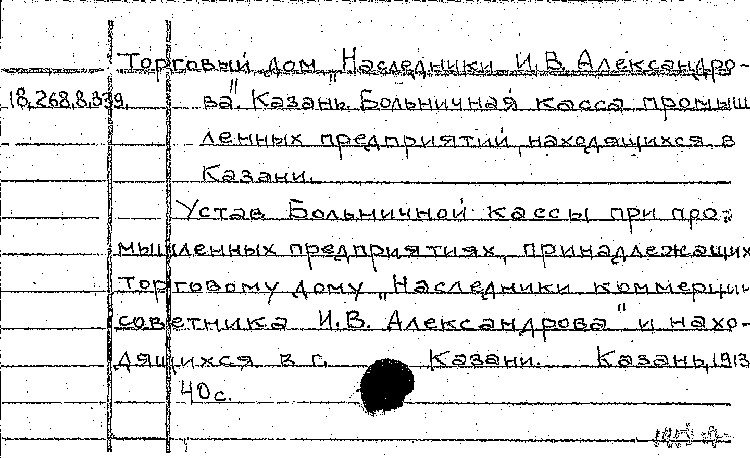 Торговый дом „Наследники И.В. Александро-
18.268.8.339. ва". Казань. Больничная касса промыш
ленных предприятий, находящихся в
Казани.
Устав Больничной кассы при про-
мышленных предприятиях, принадлежащих
торговому дому „Наследники коммерции
советника И.В. Александрова" и нахо-
дящихся в г. Казани. Казань, 1913
40 с.